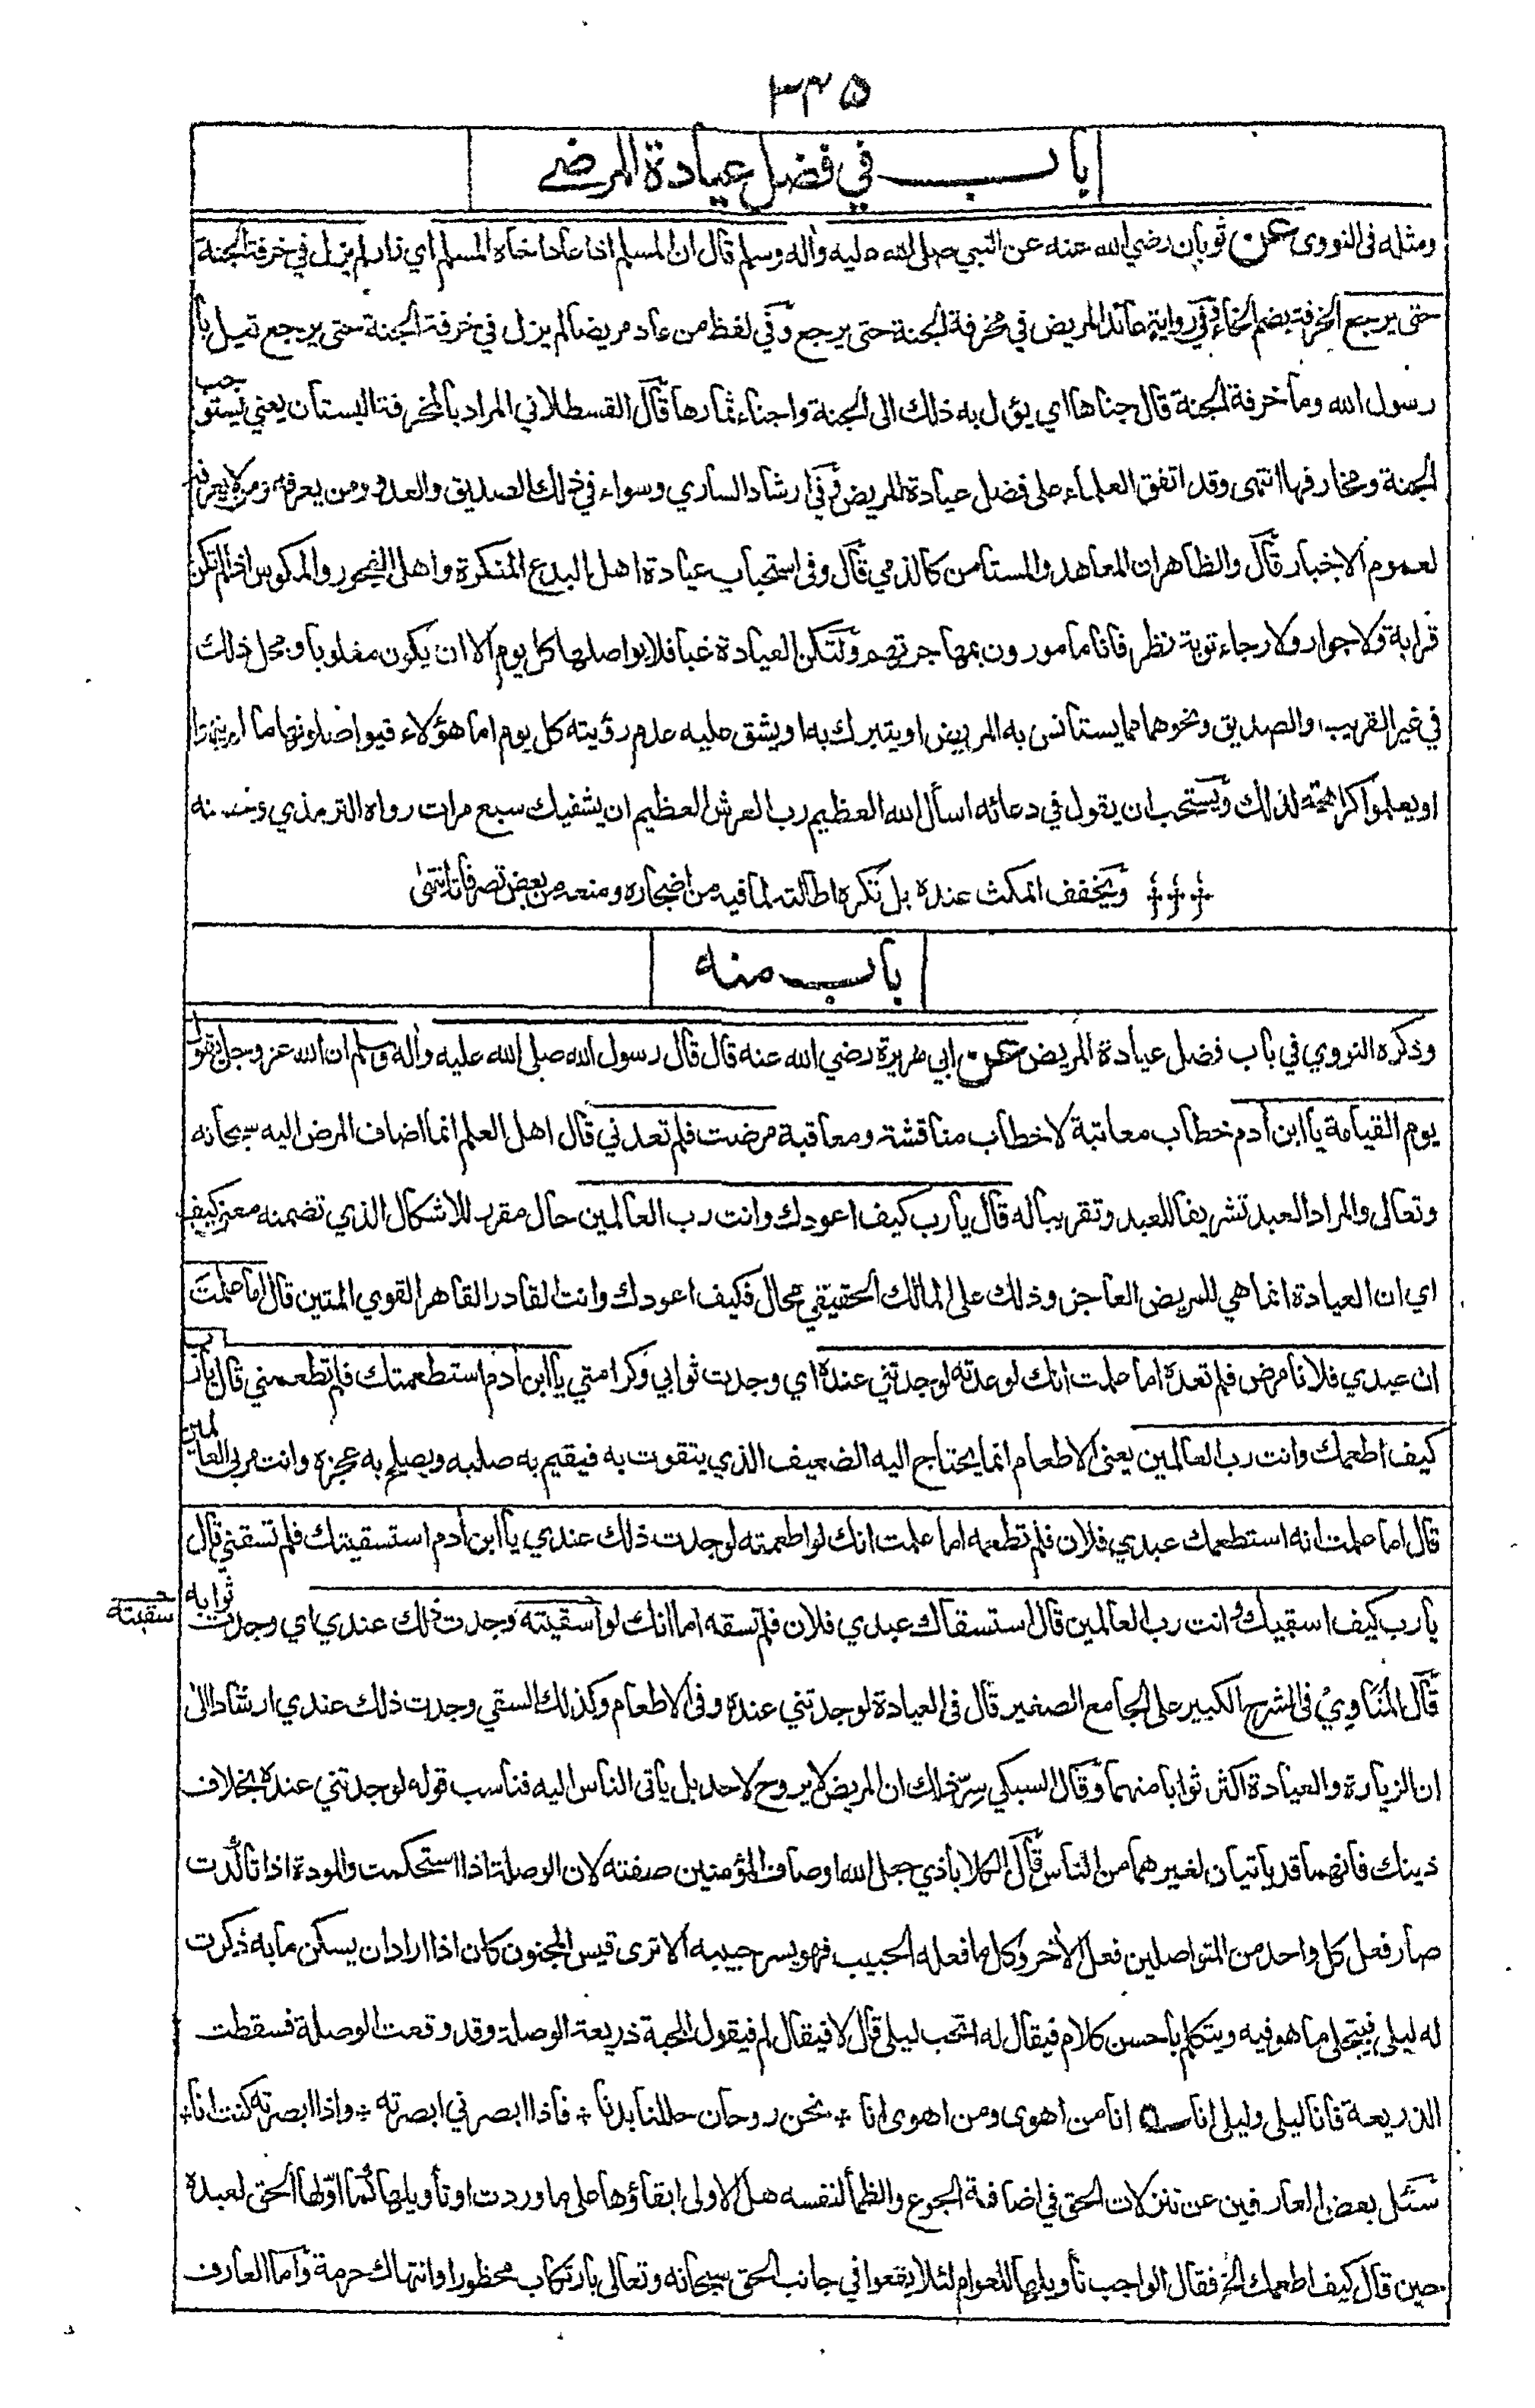 ٣٣٥
باب في فضل عيادة المرضى
ومثله في النووي عن ثوبان رضي الله عنه عن النبي صلى الله عليه واله وسلم قال ان المسلم اذا عاد اخاه المسلم اي زار لم يزل في خرفة الجنة
حتى يرجع الخرفة بضم الخاء وفي رواية عائد المريض في مخرفة الجنة حتى يرجع وفي لفظ من عاد مريضا لم يزل في خرفة الجنة حتى يرجع قيل يا
رسول الله وما خرفة الجنة قال جناها اي يؤل به ذلك الى الجنة واجتناء ثمارها قال القسطلاني المراد بالمخرفة البستان يعني يستوجب
الجنة ومخارفها انتهى وقد اتفق العلماء على فضل عيادة المريض وفي ارشاد الساري وسواء في ذلك الصديق والعدو ومن يعرفه ومن لا يعرفه
لعموم الاخبار قال والظاهر ان المعاهد والمستامن كالذمي قال وفى استحباب عيادة اهل البدع المنكرة واهل الفجور والمكوس اذا لم تكن
قرابة ولا جوار ولا رجاء توبة نظر فانا مامورون بمهاجرتهم ولتكن العيادة غبا فلا يواصلها كل يوم الا ان يكون مغلوبا ومحل ذلك
في غير القريب والصديق ونحوهما مما يستانس به المريض او يتبرك به او يشق عليه عدم رؤيته كل يوم اما هؤلاء فيواصلونها ما لم ينهوا
او يعلموا كراهته لذلك ويستحب ان يقول في دعائه اسأل الله العظيم رب العرش العظيم ان يشفيك سبع مرات رواه الترمذي وحسنه
ويخفف المكث عنده بل تكره اطالته لما فيه من اضجاره ومنعه من بعض تصرفاته انتهى
باب منه
وذكره النووي في باب فضل عيادة المريض عن ابي هريرة رضي الله عنه قال قال رسول الله صلى الله عليه واله وسلم ان الله عز وجل يقول
يوم القيامة يا ابن أدم خطاب معاتبة لا خطاب مناقشة ومعاقبة مرضت فلم تعدني قال اهل العلم انما اضاف المرض اليه سبحانه
وتعالى والمراد العبد تشريفا للعبد وتقريبا له قال يا رب كيف اعودك وانت رب العالمين حال مقررة للاشكال الذي تضمنه معنى كيف
اي ان العيادة انما هي للمريض العاجز وذلك على المالك الحقيقي محال فكيف اعودك وانت القادر القاهر القوي المتين قال اما علمت
ان عبدي فلانا مرض فلم تعده اما علمت انك لو عدته لوجدتني عنده اي وجدت ثوابي وكرامتي يا ابن أدم استطعمتك فلم تطعمني قال يا رب
كيف اطعمك وانت رب العالمين يعني الاطعام انما يحتاج اليه الضعيف الذي يتقوت به فيقيم به صلبه ويصلح به عجزه وانت مربي العالمين
قال اما علمت انه استطعمك عبدي فلان فلم تطعمه اما علمت انك لو اطعمته لوجدت ذلك عندي يا ابن أدم استسقيتك فلم تسقني قال
يا رب كيف اسقيك وانت رب العالمين قال استسقاك عبدي فلان فلم تسقه اما انك لو اسقيته وجدت ذلك عندي اي وجدت ثوابه
سقيته
قال المُنَاوِيُ في الشرح الكبير على الجامع الصغير قال في العيادة لوجدتني عنده وفي الاطعام وكذلك السقي وجدت ذلك عندي ارشادا الى
ان الزيارة والعيادة اكثر ثوابا منهما وقال السبكي سِرّ ذلك ان المريض لا يروح لاحد بل ياتى الناس اليه فناسب قوله لوجدتني عنده بخلاف
ذينك فانهما قد ياتيان لغيرهما من الناس قال الكلاباذي جعل الله اوصاف المؤمنين صفته لان الوصلة اذا استحكمت والمودة اذا تأكّدت
صار فعل كل واحد من المتواصلين فعل الأخر وكل ما فعله الحبيب فهو يسر حبيبه الا ترى قيس المجنون كان اذا اراد ان يسكن ما به ذكرت
له ليلى فيتجلى ما هو فيه ويتكلم باحسن كلام فيقال له اتحب ليلى قال لا فيقال لم فيقول المحبة ذريعة الوصلة وقد وقعت الوصلة فسقطت
الذريعة فانا ليلى وليلى انا انا من اهوى ومن اهوى انا * نحن روحان حللنا بدنا * فاذا ابصرني ابصرته * واذا ابصرته كنت انا *
سئل بعض العارفين عن تنزلات الحق في اضافة الجوع والظمأ لنفسه هل الاولى ابقاؤها على ما وردت او تأويلها كما اوّلها الحق لعبده
حين قال كيف اطعمك الخ فقال الواجب تأويلها للعوام لئلا يقعوا في جانب الحق سبحانه وتعالى بارتكاب محظور او انتهاك حرمة واما العارف